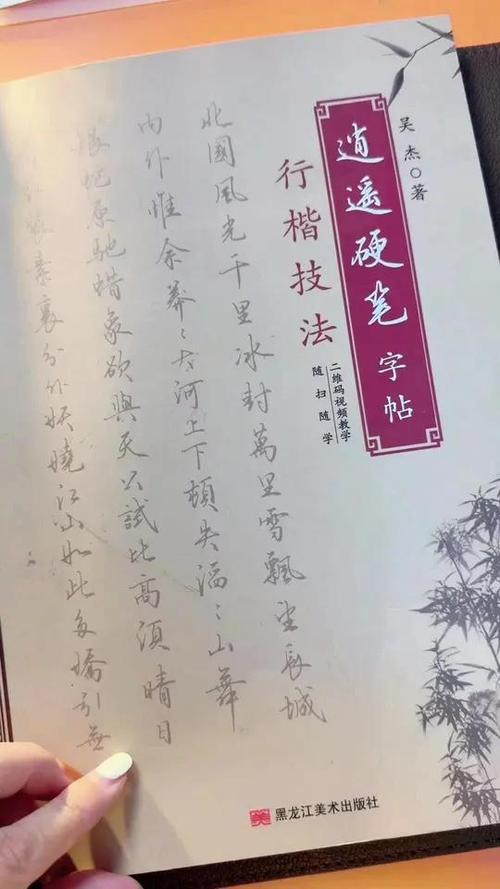 吴杰◎著
逍遥硬笔字帖
行楷技法
二维码视频教学
随扫随学
北國風光千里冰封萬里雪飄望長城
内外惟余莽〻大河上下頓失滔〻山舞
銀蛇原馳蜡象欲與天公試比高須晴日
装素裹分外妖嬈江山如此多嬌引無
黑龙江美术出版社